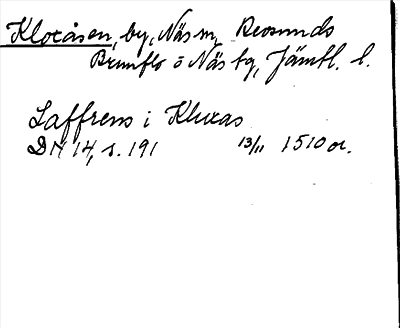 Klocåsen, by, Näs sn, Revsunds
Brunflo o Näs tg, Jämtl. l.
Laffrens i Kluxas
DN 14, s. 191 13/11 1510 or.